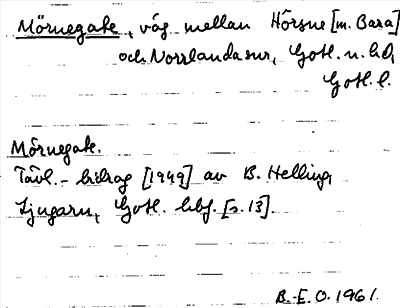 Mörnegate, väg mellan Hörsne [m. Bara]
och Norrlanda snr, Gotl. n. hd,
Gotl. l.
Mörnegate.
Tävl.-bidrag [1949] av B. Helling,
Ljugarn, Gotl. hbf. [s. 13].
B.-E. O. 1961.